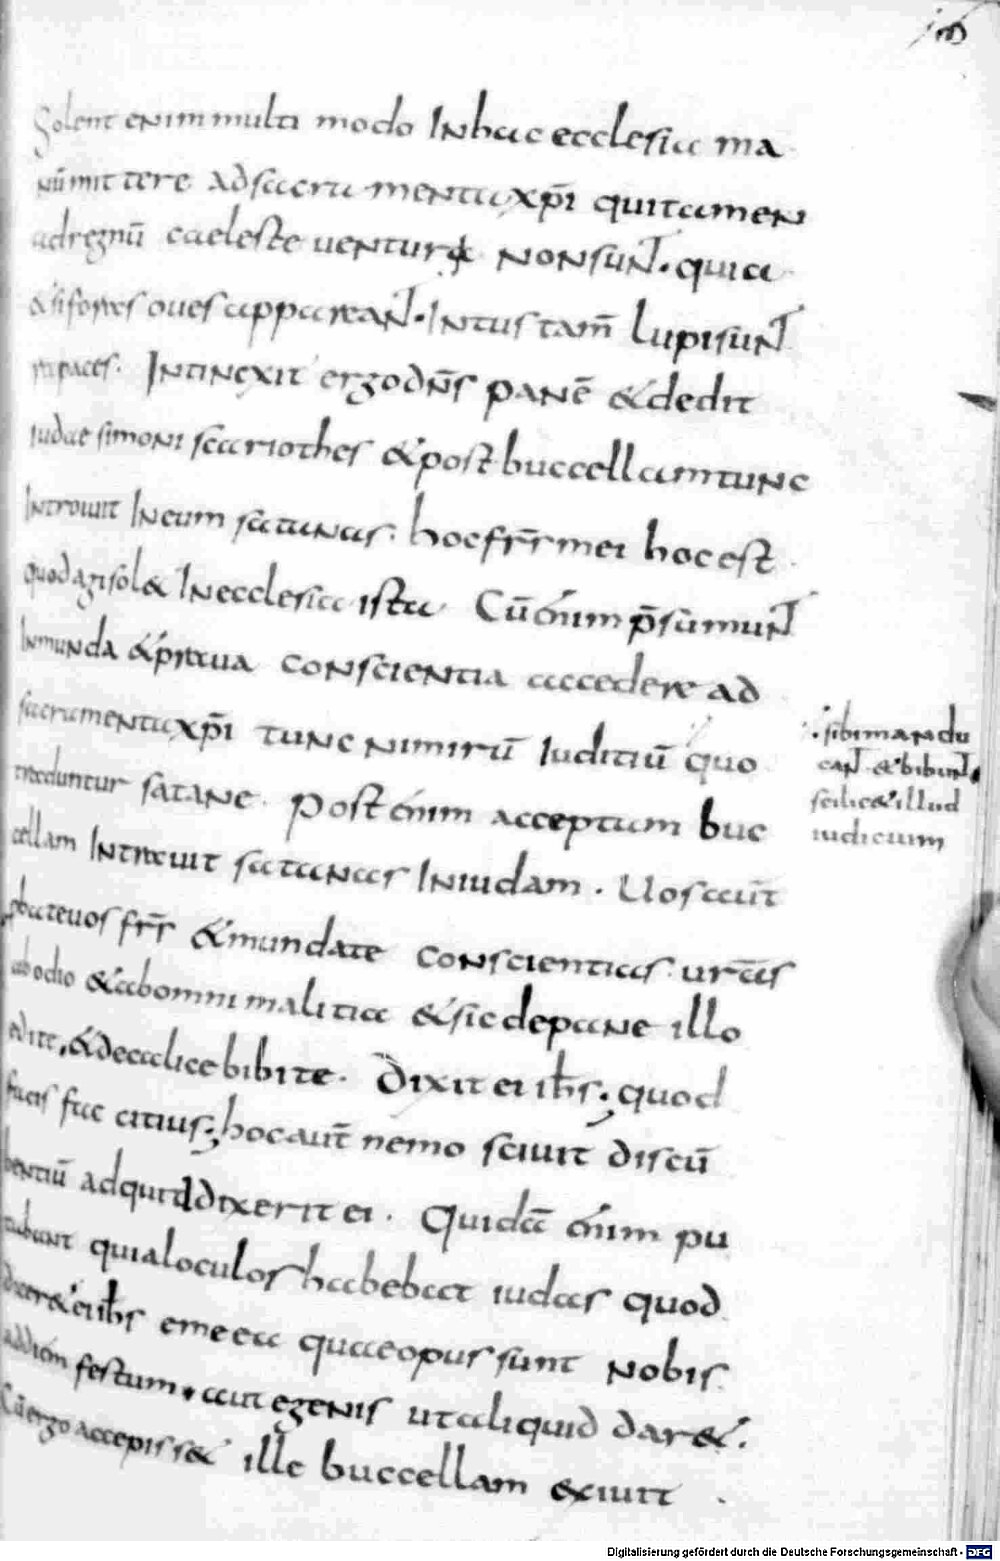 Solent enim multi modo Inhac ecclesia ma
nū mittere ad sacramenta xp̄i qui tamen
ad regnū caeleste uenturi non sunt. quia
& si foris oues appareant. Intus tam̄ lupi sunt
rapaces. Intinexit ergo dn̄s panē & dedit
iudae simoni scariothes & post buccellam tunc
Introiuit In eum satanas. hoc fr̄r mei hoc est
quod agi sol& In ecclesia ista Cū enim p̄sūmunt
Inmunda & praua conscientia accedere ad
sacramenta xp̄i tunc nimirū Iuditiū quo
traduntur satane. Post enim acceptum buc
cellam Intrauit satanas In iudam. Uos aūt
pbate uos fr̄r & mundate conscientias ur̄as
ab odio & ab omni malitia & sic de pane illo
edite, & de calice bibite. Dixit ei ih̄s; quod
facis fac citius; hoc aut̄ nemo sciuit discū
bentiū ad quid dixerit ei. Quidā enim pu
tabant quia loculos habebat iudas quod
dicer& ei ih̄s eme ea quae opus sunt nobis
ad diem festum. aut egenis ut aliquid dar&.
Cū ergo accepiss& ille buccellam exiuit.
. sibi mandu
cant & bibunt
scilic& illud
iudicium